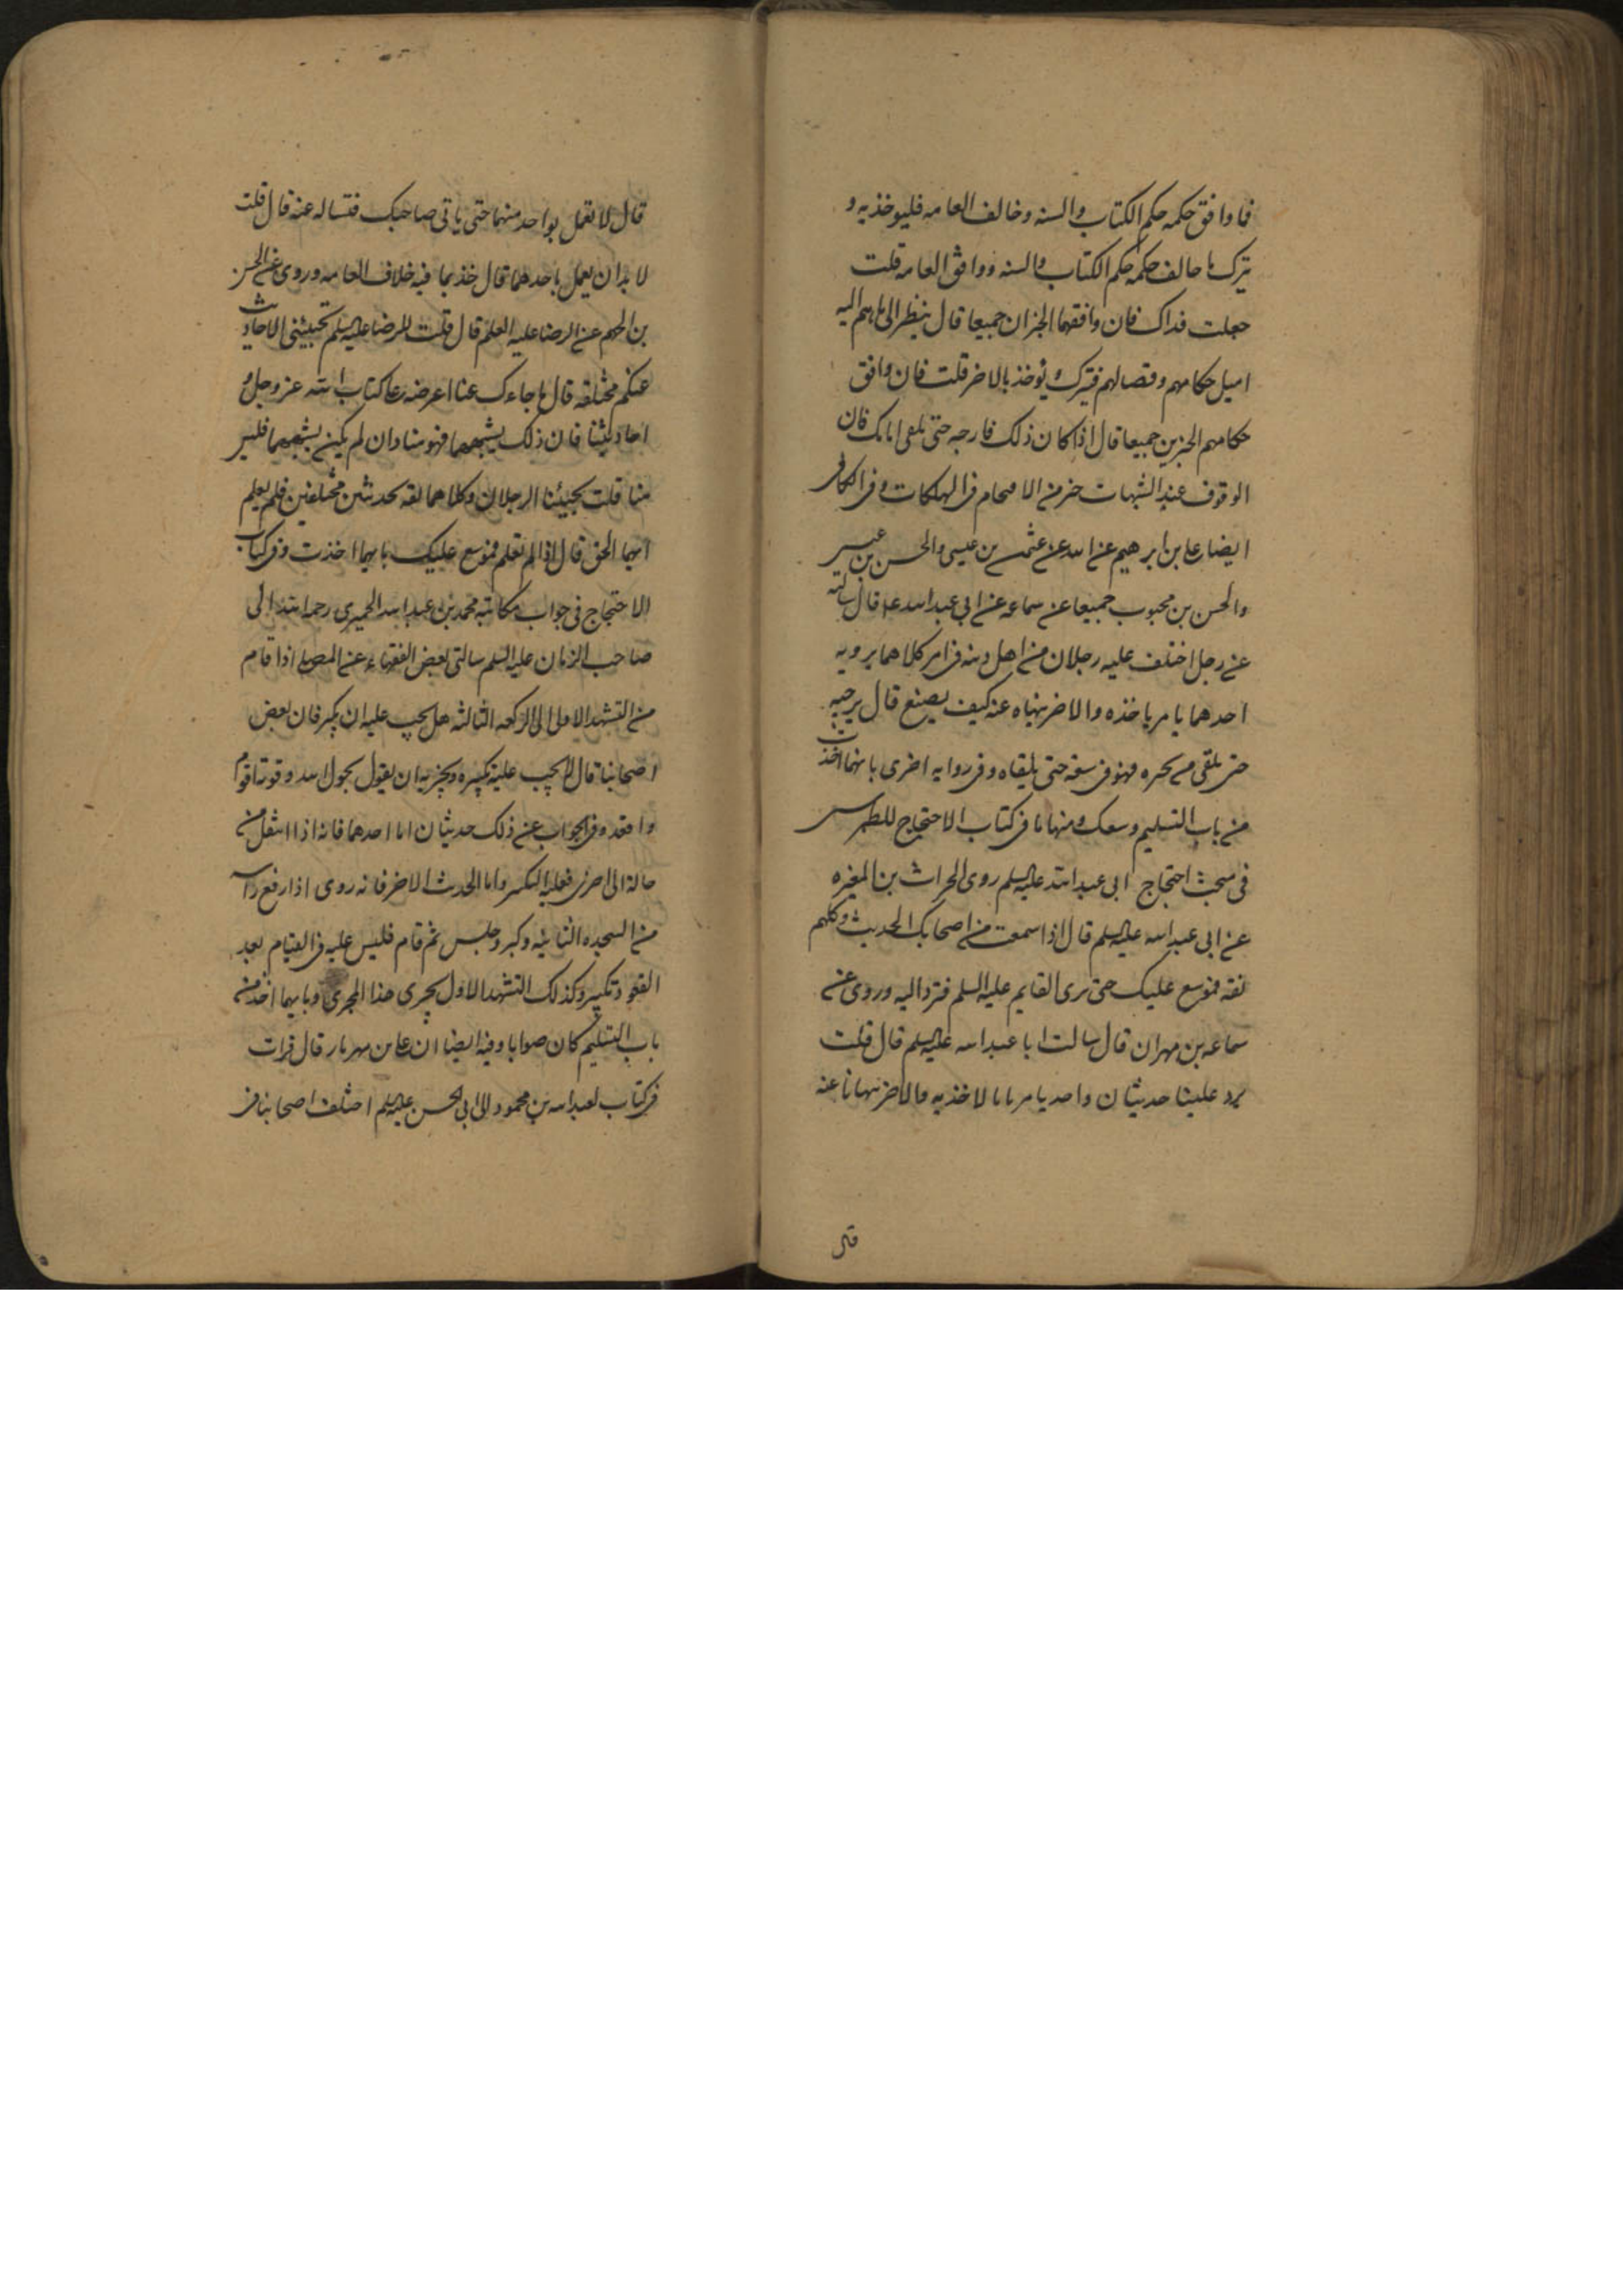 فما وافق حكمه حكم الكتاب والسنه وخالف العامه فليوخذ به و
يترك ما خالف حكمه حكم الكتاب والسنه ووافق العامه قلت
جعلت فداك فان وافقهما الخبران جميعا قال ينظر الى ما هم اليه
اميل حكامهم وقضاتهم فيترك ويوخذ بالاخر قلت فان وافق
حكامهم الخبرين جميعا قال اذا كان ذلك فارجه حتى تلقى امامك فان
الوقوف عند الشبهات خير من الاقتحام فى الهلكات وفى الكافى
ايضا على بن ابرهيم عن ابيه عن عثمن بن عيسى والحسن بن
والحسن بن محبوب جميعا عن سماعه عن ابى عبد الله ع قال سالته
عن رجل اختلف عليه رجلان من اهل دينه فى امر كلاهما يرويه
احدهما يامر باخذه والاخر ينهاه عنه كيف يصنع قال يرجيه
حتى يلقى من يخبره فهو فى سعه حتى يلقاه وفى روايه اخرى بايهما اخذت
من باب التسليم وسعك ومنها ما فى كتاب الاحتجاج للطبرسى
فى مبحث احتجاج ابى عبد الله عليه السلم روى الحراث بن المغيره
عن ابى عبد الله عليه السلم قال اذا سمعت من اصحابك الحديث وكلهم
ثقه فموسع عليك حتى ترى القايم عليه السلم فترد اليه وروى عن
سماعه بن مهران قال سالت ابا عبد الله عليه السلم قال قلت
يرد علينا حديثان واحد يامرنا بالاخذ به والاخر ينهانا عنه
قال
قال لا تعمل بواحد منهما حتى ياتى صاحبك فتساله عنه قال قلت
لا بد ان يعمل باحدهما قال خذ بما فيه خلاف العامه وروى عن الحسن
بن الجهم عن الرضا عليه السلم قال قلت للرضا عليه السلم تجيئنى الاحاديث
عنكم مختلفه قال ما جاءك عنا اعرضه على كتاب الله عز وجل و
احاديثنا فان ذلك يشبههما فهو منا وان لم يكن يشبههما فليس
منا قلت يجيئنا الرجلان وكلاهما ثقه بحديثين مختلفين فلم يعلم
ايهما الحق قال اذا لم تعلم فموسع عليك بايهما اخذت وفى كتاب
الاحتجاج فى جواب مكاتبه محمد بن عبد الله الحميرى رحمه الله الى
صاحب الزمان عليه السلم سالنى بعض الفقهاء عن المصلى اذا قام
من التشهد الاول الى الركعه الثالثه هل يجب عليه ان يكبر فان بعض
اصحابنا قال لا يجب عليه تكبيره ويجزيه ان يقول بحول الله وقوته اقوم
واقعد وفى الجواب عن ذلك حديثان اما احدهما فانه اذا انتقل من
حاله الى اخرى فعليه التكبير واما الحديث الاخر فانه روى اذا رفع راسه
من السجده الثانيه وكبر وجلس ثم قام فليس عليه فى القيام بعد
القعود تكبير وكذلك التشهد الاول يجرى هذا المجرى وبايهما اخذ من
باب التسليم كان صوابا وفيه ايضا ان على بن مهزيار قال قرات
فى كتاب لعبد الله بن محمود الى ابى الحسن عليه السلم اختلف اصحابنا فى